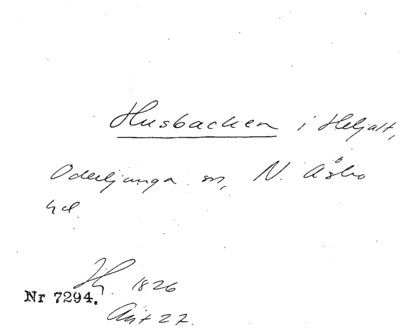 Husbacken i Heljalt,
Oderljunga sn, N. Åsbo
hd.
1826
Nr 7294.
27.